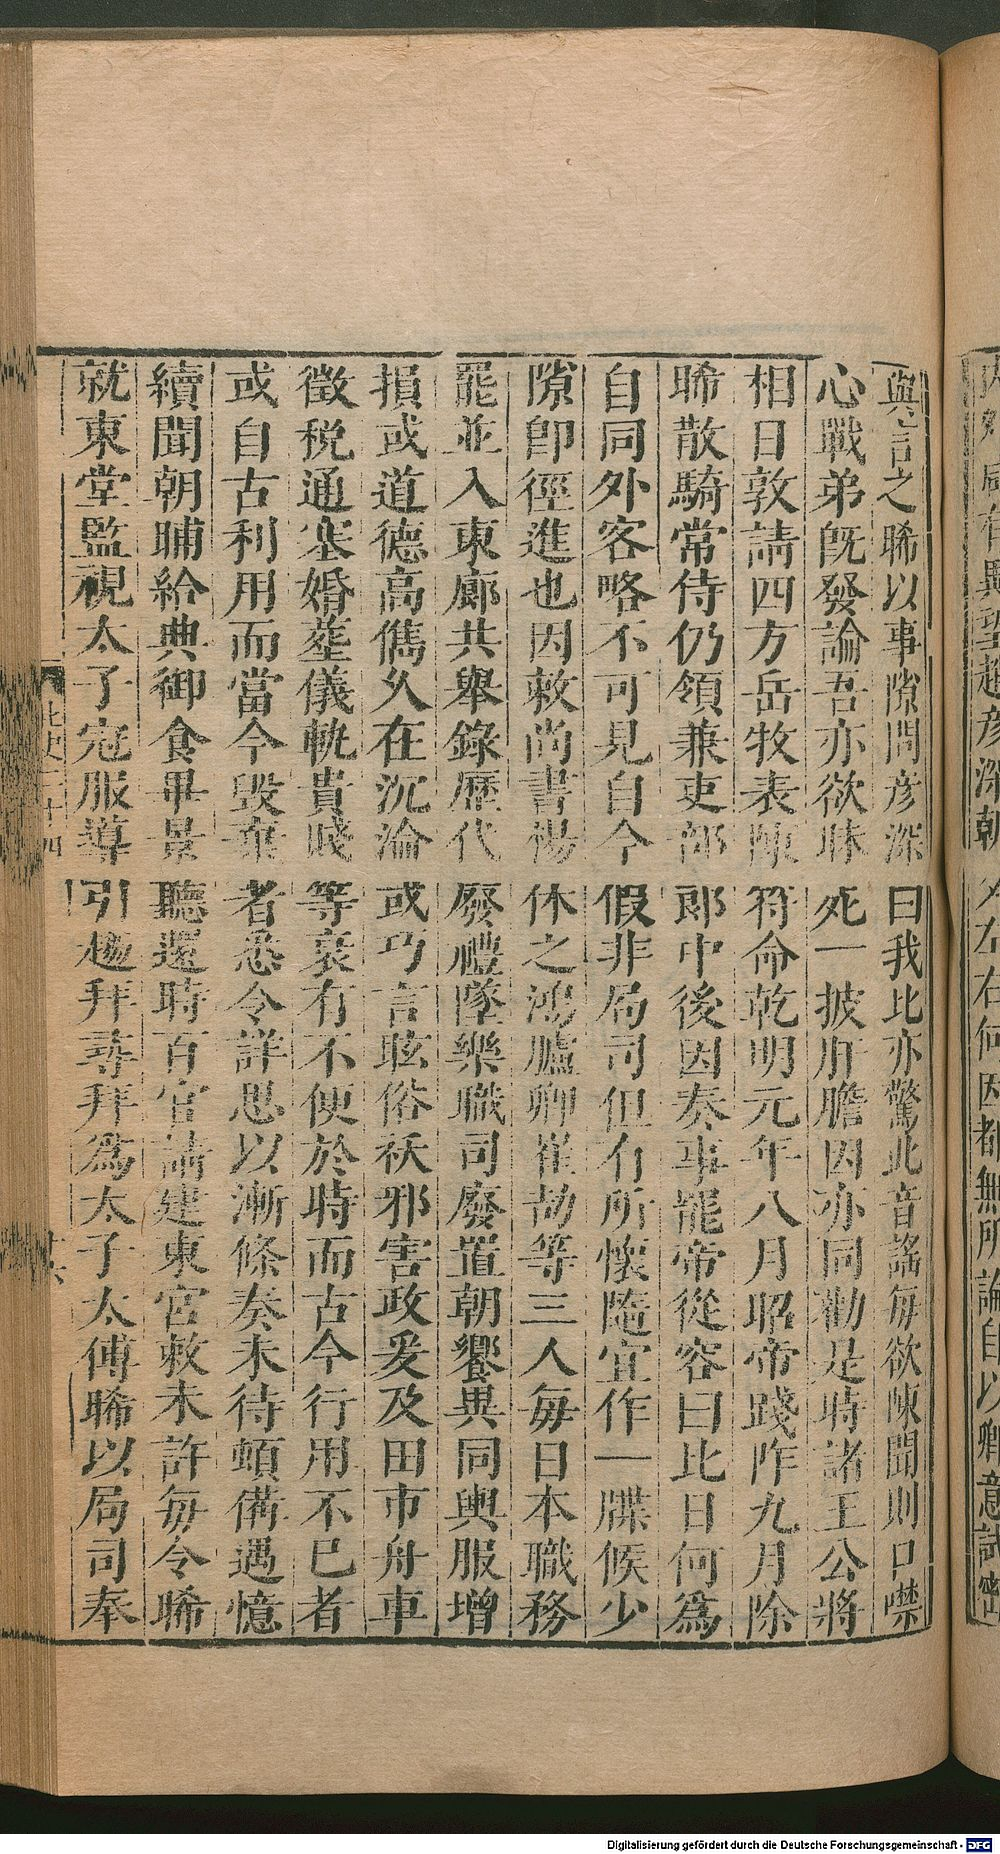 與言之晞以事隙問彦深曰我比亦驚此音謠每欲陳聞則口噤
心戰弟旣發論吾亦欲昧死一披肝膽因亦同勸是時諸王公將
相日敦請四方岳牧表陳符命乾明元年八月昭帝踐阼九月除
晞散騎常侍仍領兼吏部郎中後因奏事罷帝從容曰比日何爲
自同外客略不可見自今假非局司但有所懷隨宜作一牒候少
隙卽徑進也因敕尚書楊休之鴻臚卿崔劼等三人每日本職務
罷並入東廊共舉錄歷代廢禮墜樂職司廢置朝饗異同輿服增
損或道德高儁久在沉淪或巧言眩俗祅邪害政爰及田市舟車
徵稅通塞婚葬儀軌貴賤等衰有不便於時而古今行用不已者
或自古利用而當今毁棄者悉令詳思以漸條奏未待頓備遇憶
續聞朝晡給典御食畢景聽還時百官請建東宮敕未許每令晞
就東堂監視太子冠服導引趨拜尋拜爲太子太傅晞以局司奉
Digitalisierung gefördert durch die Deutsche Forschungsgemeinschaft - DFG